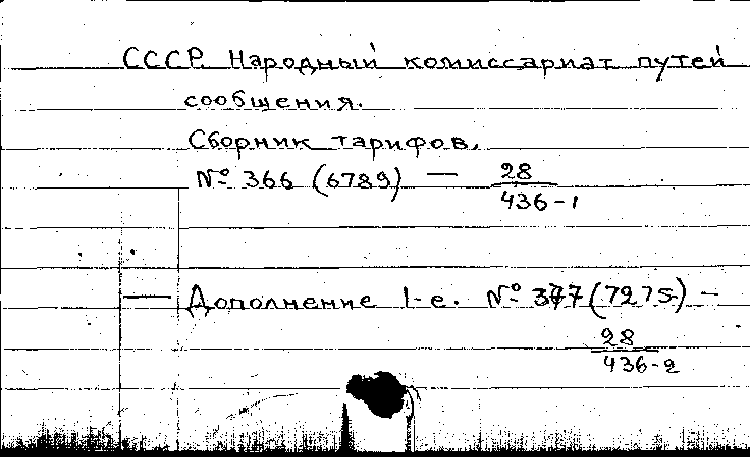 СССР. Народный комиссариат путей
сообщения.
Сборник тарифов.
№ 366 (6789) — 28
436-1
— Дополнение 1-е. № 377 (7275) —
28
436-2